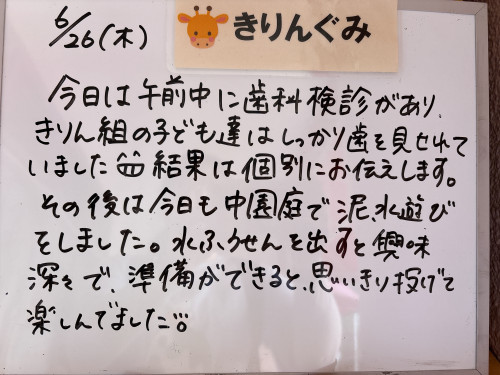 6/26(木)
きりんぐみ
今日は午前中に歯科検診があり、
きりん組の子ども達はしっかり歯を見せれて
いました 結果は個別にお伝えします。
その後は今日も中園庭で泥、水遊び
をしました。水ふうせんを出すと興味
深々で、準備ができると、思いきり投げて
楽しんでました。